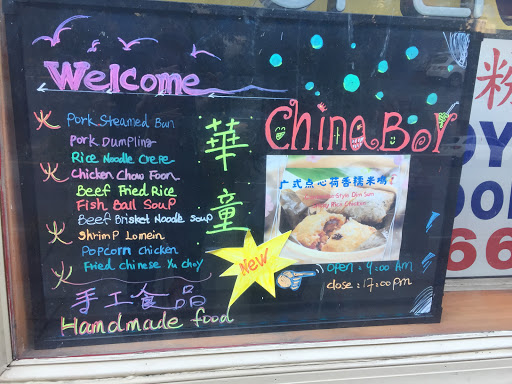 Welcome
火 Pork Steamed Bun
Pork Dumpling
Rice Noodle Crepe
火 Chicken Chow Foon
Beef Fried Rice
Fish Ball Soup
Beef Brisket Noodle Soup
火 Shrimp Lomein
Popcorn Chicken
火 Fried Chinese Yu Choy
手工食品
Handmade food
華童
China Boy
广式点心荷香糯米鸡!
Style Dim Sum
Rice Chicken
New
Open : 9:00 AM
close : 17:00 pm
粉
66